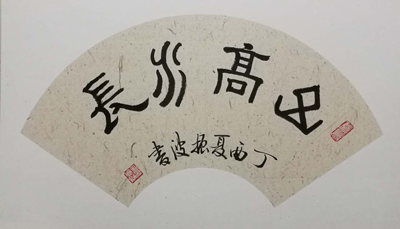 山高水長
丁酉夏振波書